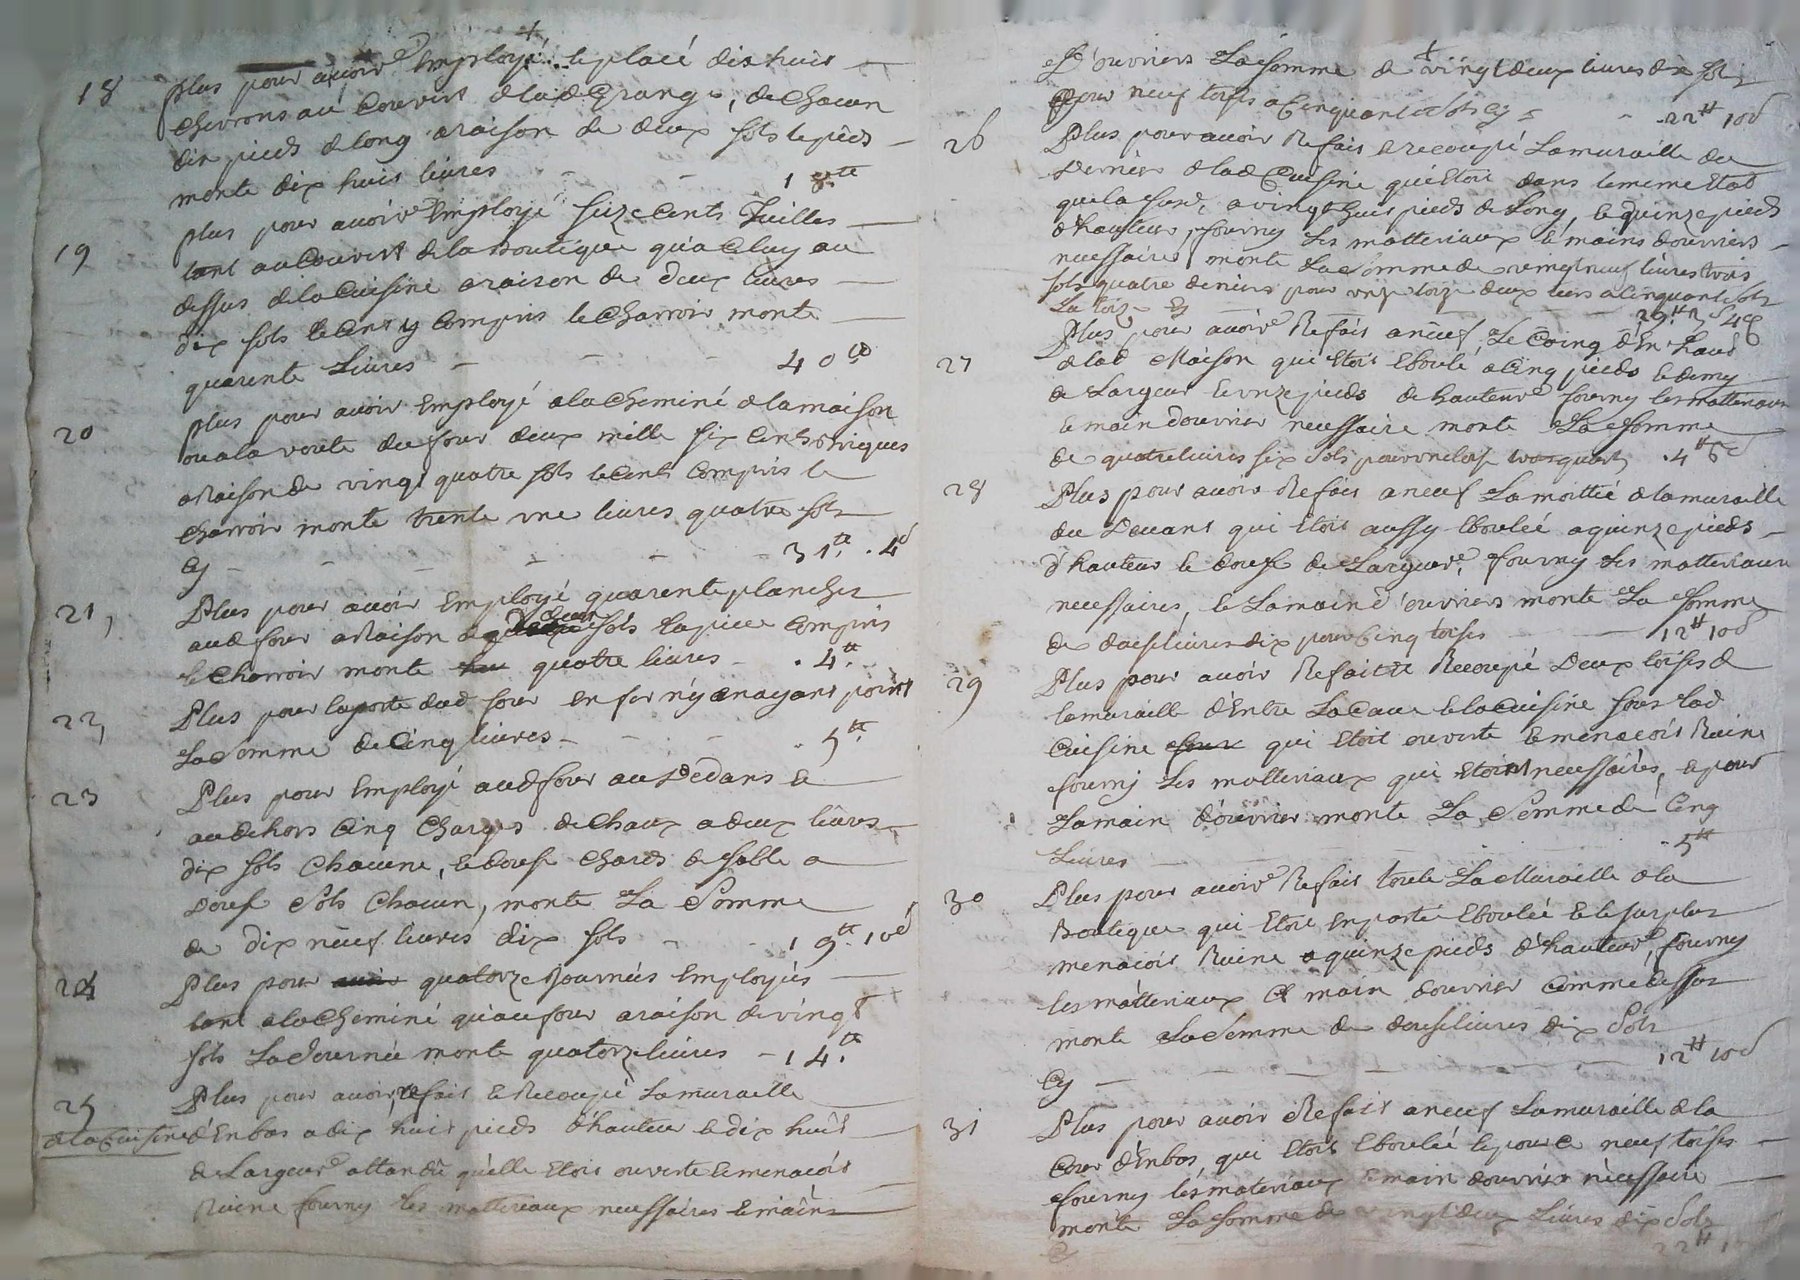 18 plus pour avoir Employé & placé dix huit
chevrons au Couvert de lad. Grange, de Chacun
dix pieds de long a raison de deux sols le pied
monte dix huit livres 18.tt
19 plus pour avoir Employé seize Cents Tuilles
tant au Couvert de la Boutique qu'a Celuy au
dessus de la Cuisine a raison de deux livres
dix sols le Cent y Compris le Charroir monte
quarente Livres 40tt
20 plus pour avoir Employé a la Cheminé de la maison
ou a la voute du four deux mille six Cents briques
a Raison de vingt quatre sols le Cent Compris le
Charroir monte trente une livres quatre sols
Cy 31tt. 4d
21, Plus pour avoir Employé quarente planches
aud four a Raison de deux sols la piece Compris
le Charroir monte quatre livres . 4.tt
22, Plus pour la porte dud four en fer n'y en ayant point
La Somme de Cinq livres . 5tt
23 Plus pour Employé aud four au Dedans &
au dehors Cinq Charges de Chaux a deux livres
dix sols Chacune, & douse Chards de sable a
douse Sols Chacun, monte La Somme
de dix neuf livres dix sols 19tt. 10d
24 Plus pour quatorze Journées Employés
tant a la Cheminé qu'au four a raison de vingt
sols La Journée monte quatorze livres 14.tt
25 Plus pour avoir refait & Recoupé La muraille
de la Cuisine d'Enbas a dix huit pieds d'hauteur & dix huit
de Largeur attandu qu'elle Etoit ouverte & menacoit
Ruine fourny les matteriaux necessaires & mains
D'ouvriers La Somme de vingt deux livres dix sols
pour neuf toises a Cinquante sols Cy 22tt 10d
26 Plus pour avoir Refait & recoupé La muraille du
Derrier de lad Cuisine qui Etoit dans le meme Etat
que la susd, a vingt huit pieds de Long, & quinze pieds
d'hauteur, fourny Les matteriaux & mains d'ouvriers
necessaires monte La Somme de vingt neuf livres trois
sols quatre deniers pour unze toize deux tiers a Cinquante sols
La toize Cy 29tt 3s 4d
27 Plus pour avoir Refait a neuf Le Coing d'En haut
de lad Maison qui Etoit Eboulé a Cinq pieds & demy
de Largeur & unze pieds de hauteur fourny les matteriaux
& main d'ouvrier necessaire monte La Somme
de quatre livres six sols pour une toise trois quart . 4tt 6d
28 Plus pour avoir Refait a neuf La moittié de la muraille
du Devant qui Etoit aussy Eboulée a quinze pieds
d'hauteur & douse de Largeur, fourny Les matteriaux
necessaires, & La main d'ouvriers monte La Somme
de douse livres dix pour Cinq toises 12tt 10d
29 Plus pour avoir Refait & Recoupé Deux toises de
la muraille d'Entre La Cave & la Cuisine sous lad
Cuisine qui Etoit ouverte & menacoit Ruine
fourny Les matteriaux qui Etoint necessaires, & pour
La main d'ouvrier monte La Somme de Cinq
Livres . 5tt
30 Plus pour avoir Refait toute La Muraille de la
Boutique qui Etoit en partie Eboulée & le surplus
menacoit Ruine a quinze pieds d'hauteur, fourny
les matteriaux & main d'ouvrier Comme dessus
monte La Somme de douse livres dix Sols
Cy 12tt 10d
31 Plus pour avoir Refait a neuf La muraille de la
Cour d'Enbas, qui Etoit Eboulée & pour Ce neuf toises
fourny les materiaux & main d'ouvrier necessaire
monte La Somme de vingt deux Livres dix Sols
Cy 22tt